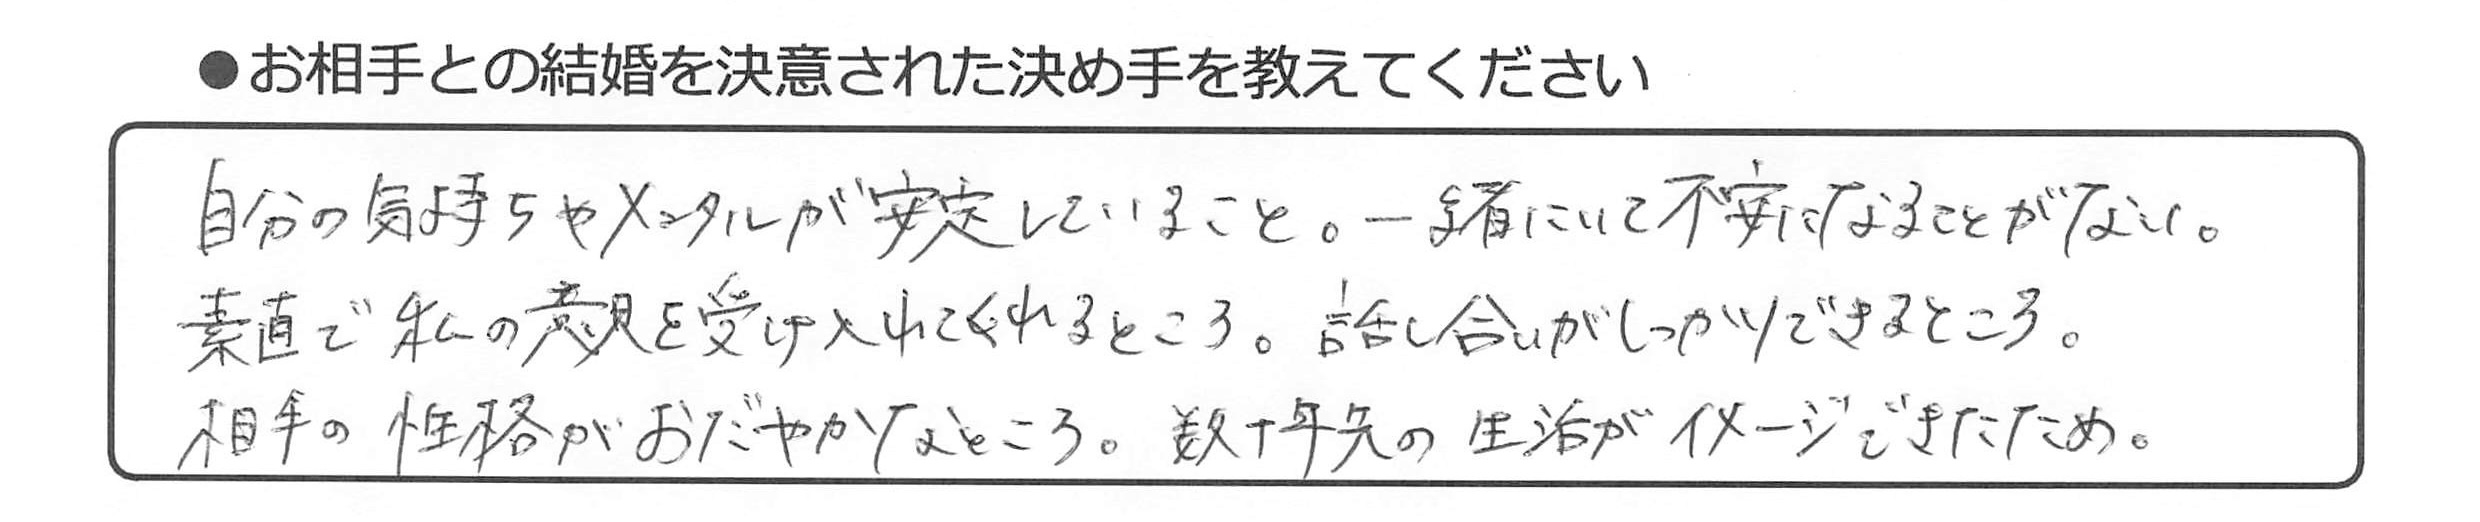 ●お相手との結婚を決意された決め手を教えてください
自分の気持ちやメンタルが安定していること。一緒にいて不安になることがない。
素直で私の意見を受け入れてくれるところ。話し合いがしっかりできるところ。
相手の性格がおだやかなところ。数十年先の生活がイメージできたため。